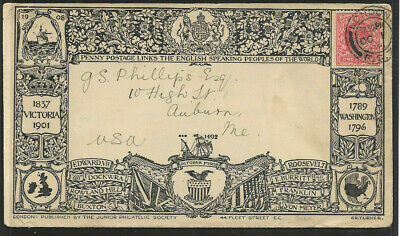 19 08
PENNY POSTAGE LINKS THE ENGLISH SPEAKING PEOPLES OF THE WORLD
1837
VICTORIA
1901
1789
WASHINGTON
1796
G.S. Phillips Esq.
10 High St
Auburn,
Me.
USA
1492
OCTOBER 1ST
EDWARD VII
DOCKWRA
ROWLAND HILL
BUXTON
ROOSEVELT
E. BURRITT
FRANKLIN
VON MEYER
LONDON: PUBLISHED BY THE JUNIOR PHILATELIC SOCIETY 44 FLEET STREET E.C. G.P. TURNER.